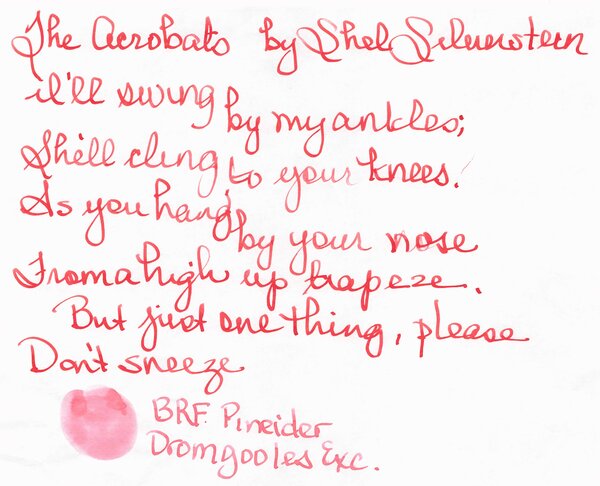 The Acrobats by Shel Silverstein
i'll swing by my ankles;
She'll cling to your knees.
As you hang by your nose
From a high up trapeze.
But just one thing, please
Don't sneeze
BRF. Pineider
Dromgooles Exc.